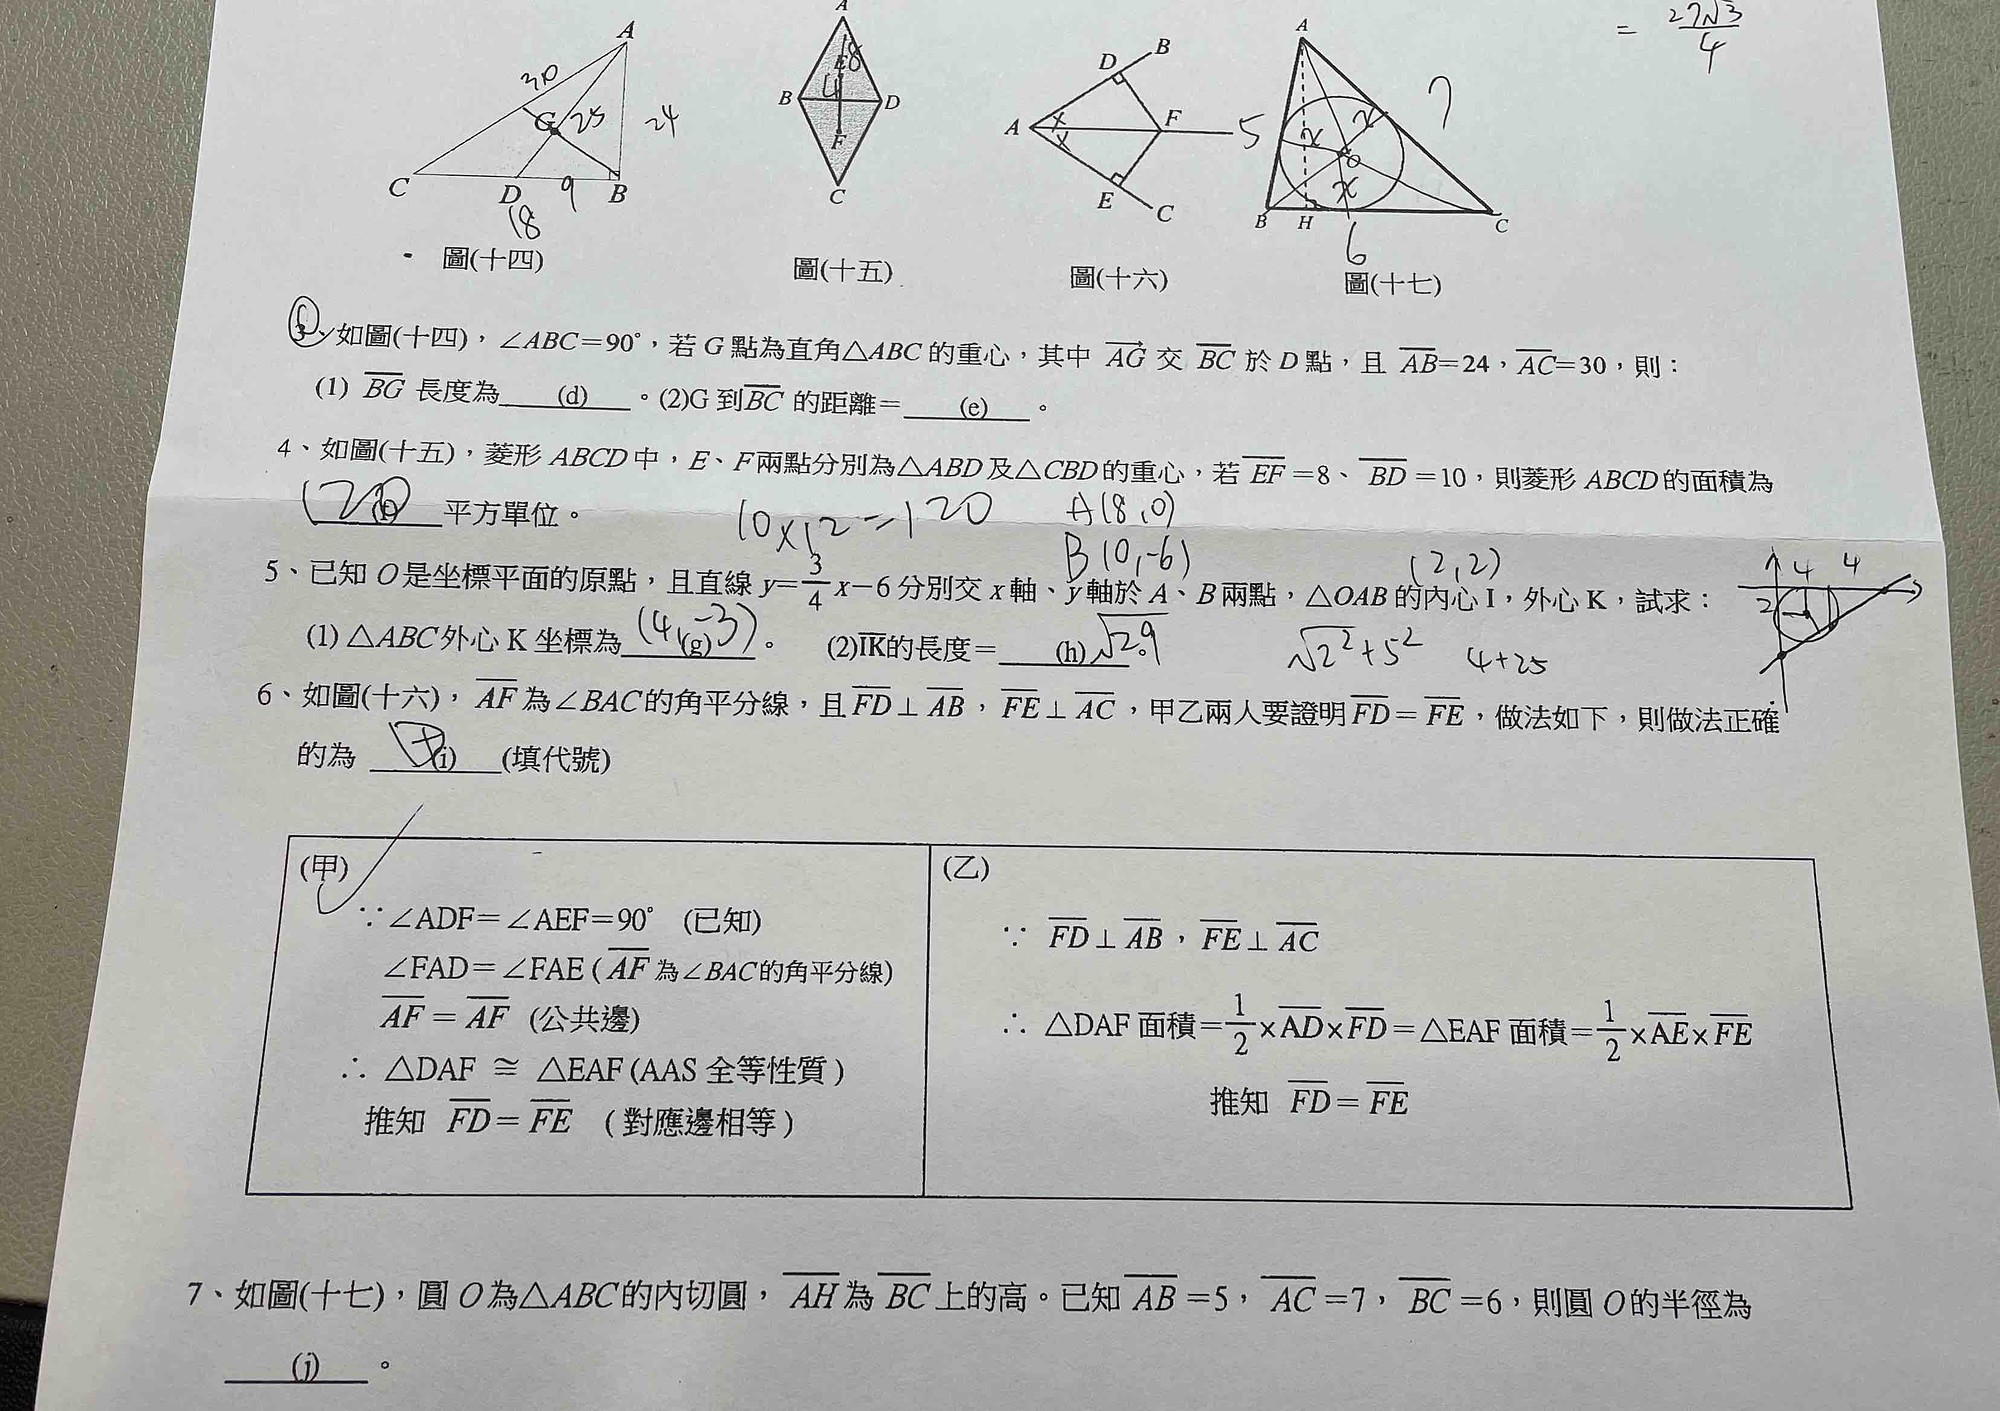 = 27√3/4
A
30
G
25
24
C
D
9
B
18
圖(十四)
A
8
E
4
B
D
F
C
圖(十五)
B
D
A
×
×
F
E
C
圖(十六)
A
7
5
x
x
O
x
B
H
C
6
圖(十七)
3、如圖(十四)，∠ABC=90°，若 G 點為直角△ABC 的重心，其中 AG 交 BC 於 D 點，且 AB=24，AC=30，則：
(1) BG 長度為 (d) 。(2)G 到BC 的距離= (e) 。
4、如圖(十五)，菱形 ABCD 中，E、F 兩點分別為△ABD 及△CBD 的重心，若 EF=8、 BD=10，則菱形 ABCD 的面積為
120 平方單位。 10×12=120 A(8,0)
B(0,-6) (2,2) 4 4
2
5、已知 O 是坐標平面的原點，且直線 y=3/4 x−6 分別交 x 軸、y 軸於 A、B 兩點，△OAB 的內心 I，外心 K，試求：
(1) △ABC 外心 K 坐標為 (4,-3) (g) 。 (2)IK的長度= (h) √29 。 √2²+5² 4+25
6、如圖(十六)，AF 為∠BAC 的角平分線，且 FD⊥AB，FE⊥AC，甲乙兩人要證明 FD=FE，做法如下，則做法正確
的為 甲 (i) (填代號)
(甲)
∵∠ADF=∠AEF=90° (已知)
∠FAD=∠FAE ( AF 為∠BAC的角平分線)
AF = AF (公共邊)
∴ △DAF ≅ △EAF (AAS 全等性質 )
推知 FD=FE ( 對應邊相等 )
(乙)
∵ FD⊥AB，FE⊥AC
∴ △DAF 面積=1/2×AD×FD=△EAF 面積=1/2×AE×FE
推知 FD=FE
7、如圖(十七)，圓 O 為△ABC 的內切圓，AH 為 BC 上的高。已知 AB=5，AC=7，BC=6，則圓 O 的半徑為
(j) 。